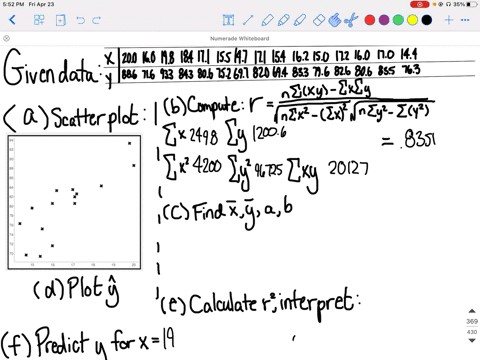 5:52 PM Fri Apr 23
35%
Numerade Whiteboard
Given data:
x 20.0 16.0 19.8 18.4 17.1 15.5 14.7 17.1 15.4 16.2 15.0 17.2 16.0 17.0 14.4
y 88.6 71.6 93.3 84.3 80.6 75.2 69.7 82.0 69.4 83.3 79.6 82.6 80.6 83.5 76.3
(a) Scatterplot:
(b) Compute: r = nΣ(xy) - ΣxΣy / √nΣx² - (Σx)² √nΣy² - Σ(y²)
Σx 249.8 Σy 1200.6
= .8351
Σx² 4200 Σy² 96725 Σxy 20127
(c) Find x̄, ȳ, a, b
(d) Plot ŷ
(e) Calculate r², interpret:
(f) Predict y for x = 19
369
430